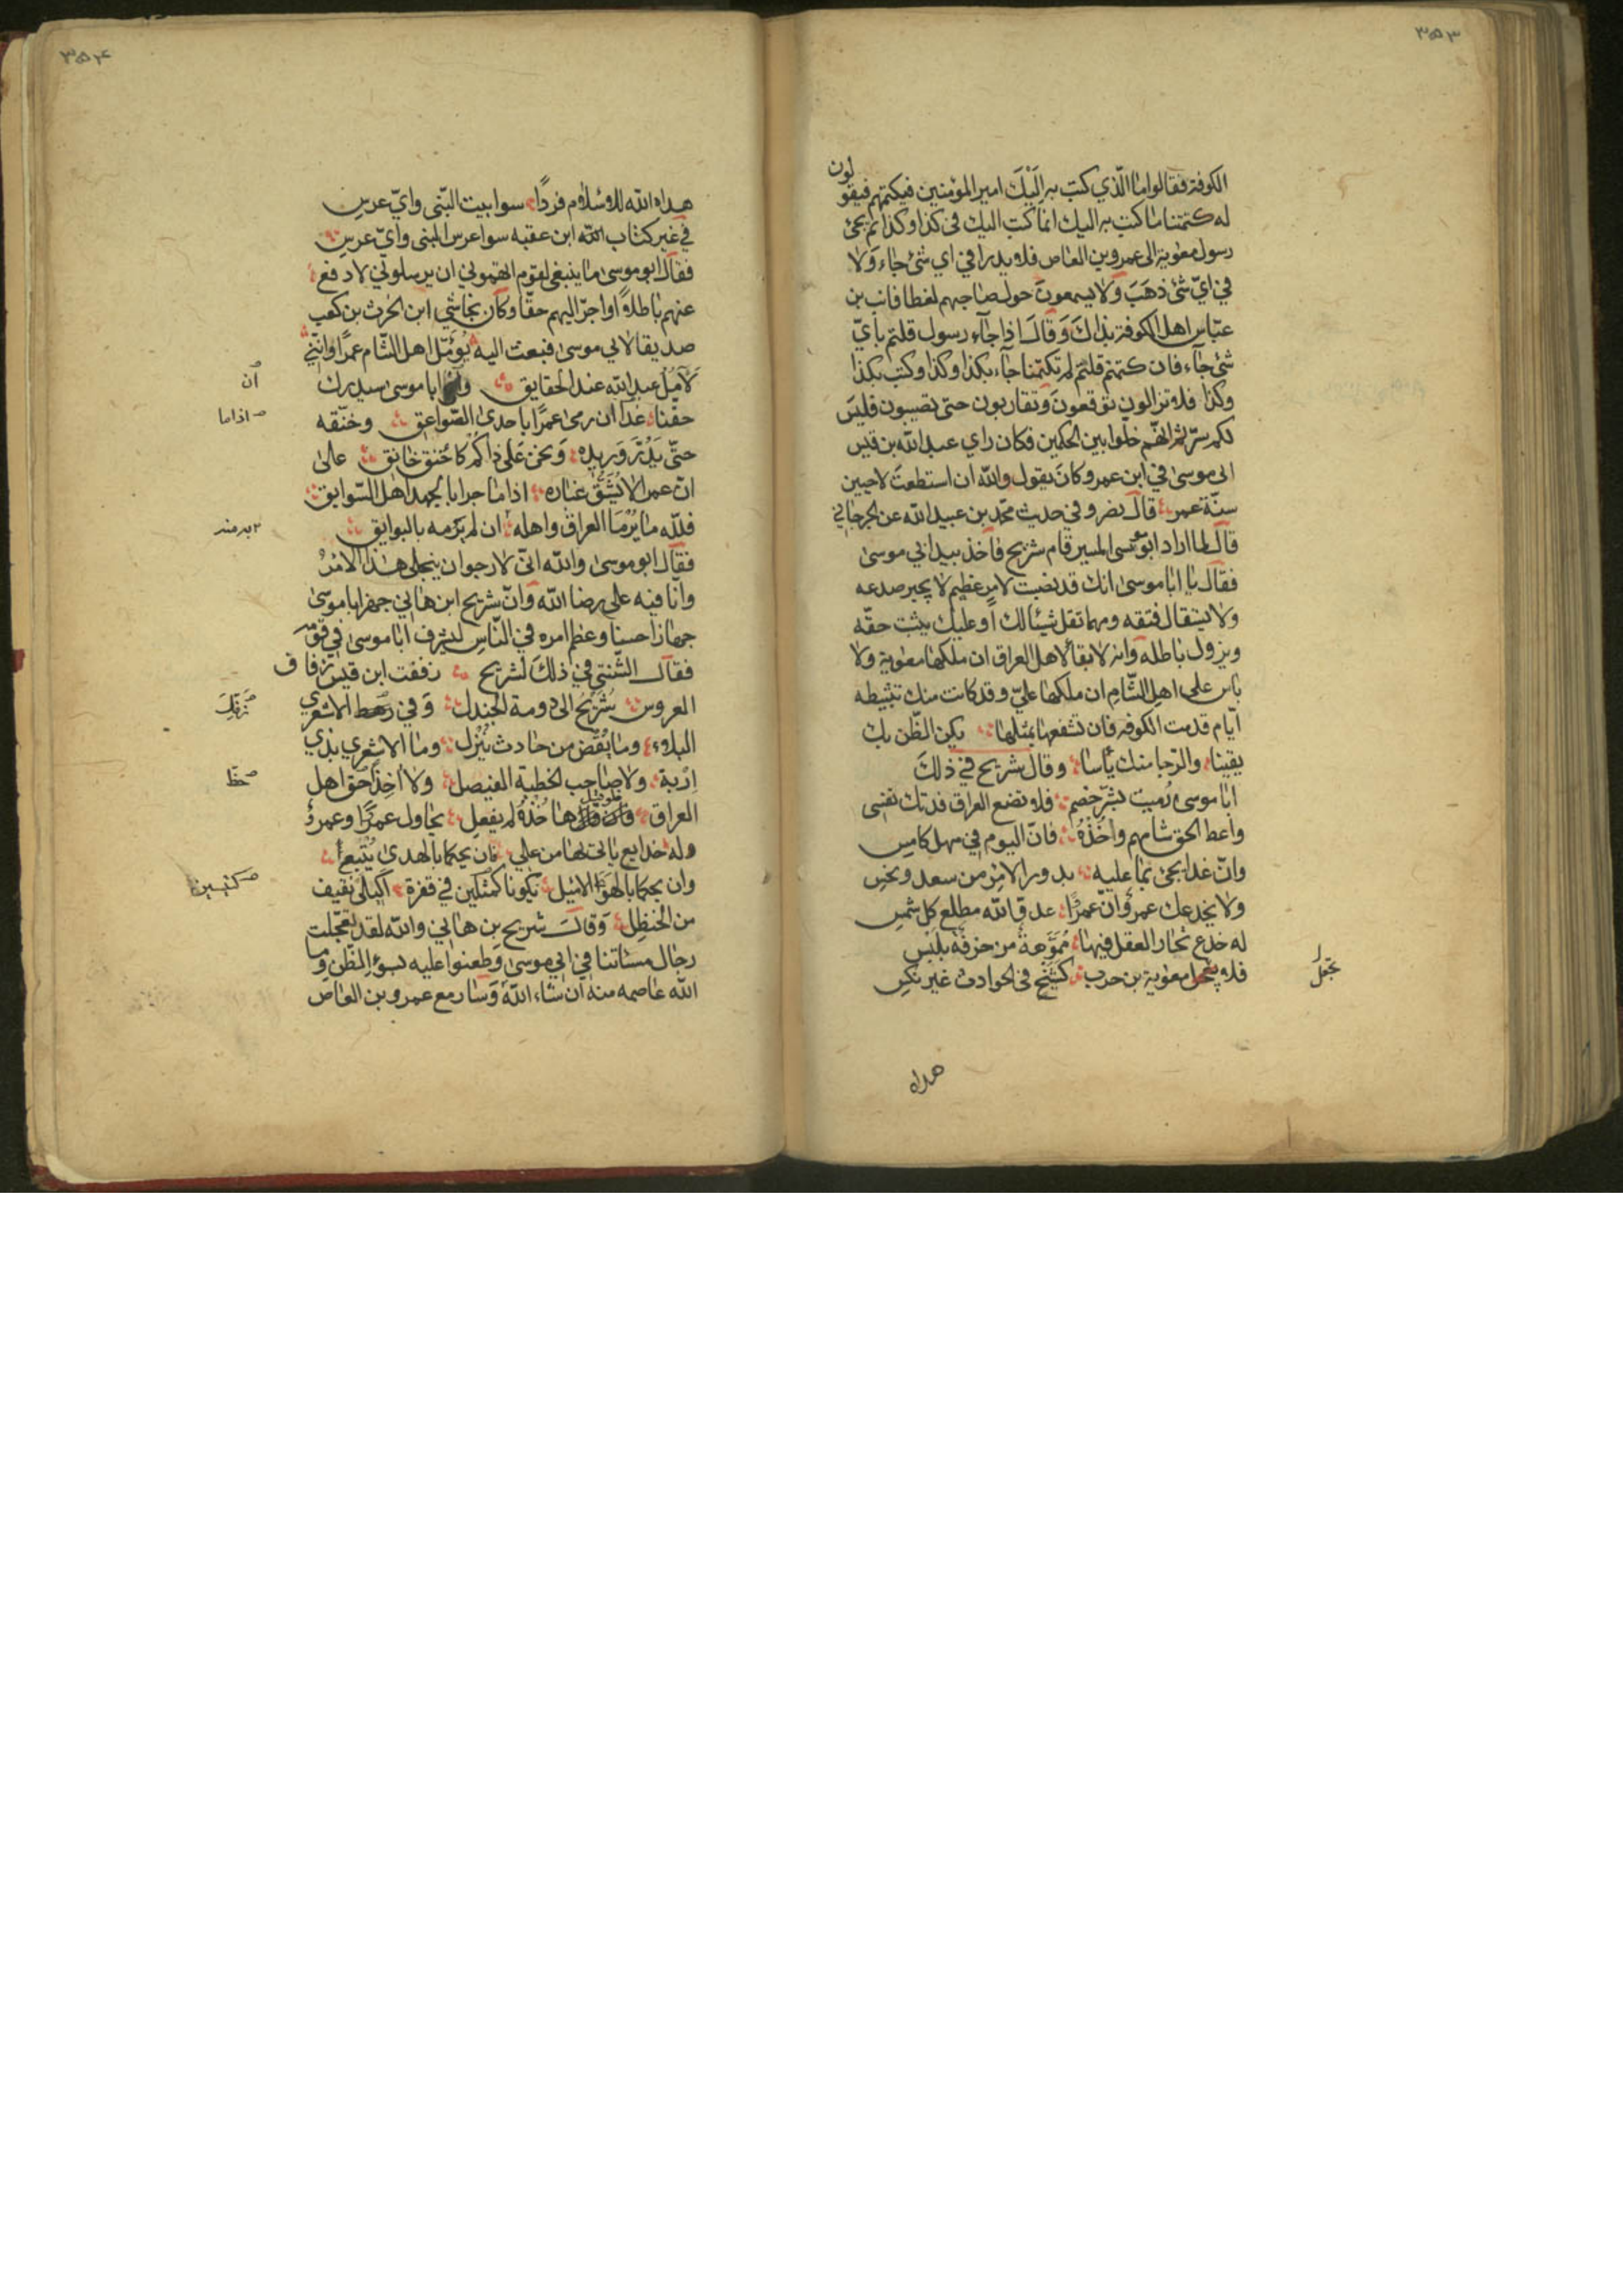 ٣٥٣
الكوفة فقالوا ما الّذي كتب به اِلَيْكَ امير المؤمنين فيكتمهم فيقولون
له كتمتنا ما كتب به اليك انما كتب اليك في كذا وكذا ثم يجئ
رسول معوية الى عمرو بن العاص فلا يدرا في اي شئ جاء وَلا
في ايّ شئ ذهَبَ وَلا يسمعونَ حول صاجبهم لغطا فانب بن
عبّاس اهل الكوفة بذلكَ وَقالَ اذا جآء رسول قلتم بايّ
شئ جآء فان كتمتم قلتم لم تكتمنا جآء بكذا وكذا وكتب بكذا
وكذا فلا تزالون توقعونَ وتقاربون حتى تصيبون فليسَ
لكم سرّ ثمّ انهم خلّوا بين الحكمين فكان راي عبد الله بن قيس
ابى موسىٰ في ابن عمر وكانَ يقول والله ان استطعتُ لاحيين
سنّة عمر قالَ نضر وفي حديث محمّد بن عبيد الله عن الجرجاني
قالَ لما اراد ابوموسى المسير قام شريح فاخذ بيد ابي موسىٰ
فقالَ يا ابا موسىٰ انك قد نصبت لامرٍ عظيم لا يجبر صدعه
ولا يستقال فتقه ومهما تقل شيئا لك او عليك يثبت حقّه
ويزول باطله وانه لا بقاء لاهل العراق ان ملكها معوية ولا
باس على اهل الشّامِ ان ملكها عليّ وقد كانت منك تثبيطه
ايّام قدمت الكوفه فان تشفعها بمثلها يكن الظّن بك
يقينا والرّجا منك يأسا وقال شريح في ذلكَ
ابا موسىٰ رُميت بشرّ خصم فلا تضع العراق فدتك نفسى
واعط الحق شامهم وخُذهُ فانّ اليوم في مهل كامسِ
وانّ غدا يجئ بما عليه يدور الامر من سعد ونحسِ
ولا يخدعك عمروٌ انّ عمرًا عدوّ الله مطلع كل شمسِ
له خدع تحار العقل فيها مُمَوَّهةٌ مزخرفَة بلَبْسِ
فلا تجعل معوية بن حرب كشيخ في الحوادث غير نكسِ
تجعل
هداه
٣٥٤
هداه الله للاسلام فردًا سوا بيت النّبى وايّ عرسِ
في غير كتاب الله ابن عقبه سوا عرس النبى وايّ عرسِ
فقالَ ابو موسى ما ينبغى لقوم اتهموني ان يرسلوني لادفع
عنهم باطلاً او اجرّ اليهم حقّا وكان نجاشي ابن الحٰرث بن كعب
صديقا لابي موسىٰ فبعث اليه يُؤَمّل اهل الشّام عمرًا وانّني
لآمُلُ عبد الله عند الحقايق وانّ ابا موسى سيدرك
ان
حقّنا غدا ان رمى عمرًا باحدى الصّواعق وخنّقه
اذا ما
حتّى يَدُرّ وَريده وَنحن عَلى ذاكم كاخنق خانق على
انّ عمرا لا يُشَقُّ غباره اذا ما جرا بالجهد اهل السّوابق
فللّه ما يُرْمَا العراق واهله ان لم يرّمه بالبوايق
فقالَ ابو موسىٰ والله انّي لارجوا ن ينجلى هذا الامْرُ
وانا فيه على رضا الله وانّ شريح ابن هاني جهز ابا موسىٰ
جهازا حسنا وعظم امره في النّاسِ ليشرف ابا موسىٰ في قومهِ
فقالَ الشّنّي في ذلكَ لشريح زففت ابن قيس زفاف
العروس شُرَيْحُ الى دومة الجندل وَفي زفّك الاشعري
زَفّك
البلاء وما يُقْضَ من حادث يَنْزل وما الاشعري بذي
اِرْبة ولا صاحب الخطبة الفيصل ولا اٰخِذًا حقّ اهل
حظّ
العراق فلو قيل ها خُذهُ لم يفعلِ يحاول عمرًا وعمروٌ
وله خدايع ياتى بها من علِ فان يحكما بالهدى يُتْبَعا
وان يحكما بالهَوَا الاميل يكونا كتيسين في قفرة اَكيلى نقيف
كتيسين
من الحنظِل وَقالَ شريح بن هاني والله لقد تعجّلت
رجال مساتنا في ابي موسىٰ وَطعنوا عليه بسوءِ الظن وما
الله عاصمه منه ان شاء الله وَسارمع عمرو بن العاص